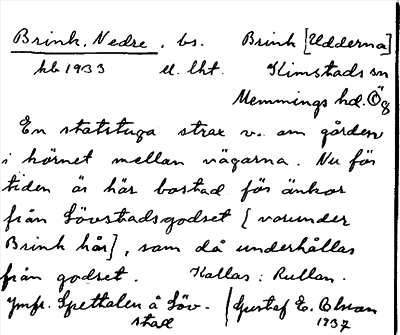 Brink, Nedre, bs. Brink [Udderna]
kb 1933 u. lht. Kimstads sn
Memmings hd. Ög
En statstuga strax v. om gården
i hörnet mellan vägarna. Nu för
tiden är här bostad för änkor
från Lövstadsgodset [varunder
Brink hör], som då underhållas
från godset. Kallas: Rullan.
Jmfr. Spettalen å Löv- Gustaf E. Olsson
stad 1937